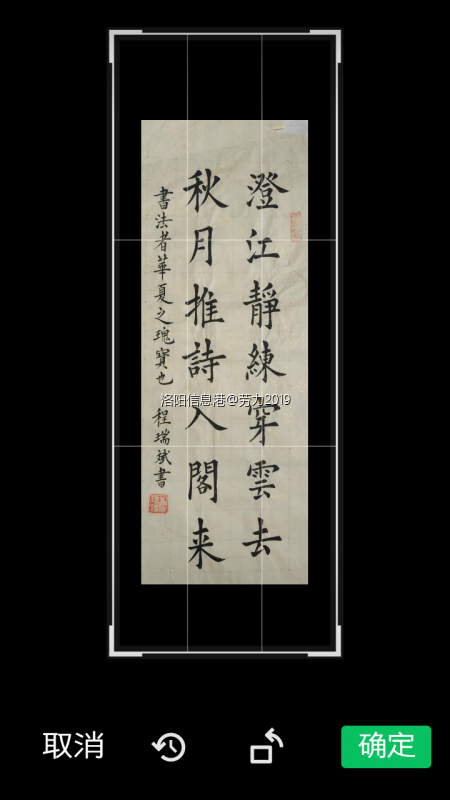 澄江静練穿雲去
秋月推詩入閣来
書法者華夏之瑰寶也 程瑞斌書
洛阳信息港@劳力2019
取消
确定